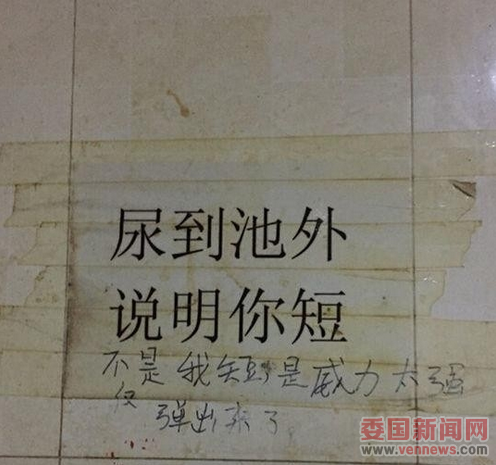 尿到池外
说明你短
不是我短是威力太强
仅弹出来了
委国新闻网
www.vennews.com